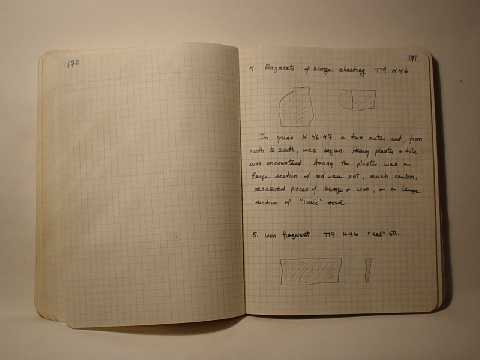 170
171
4. Fragments of bronze sheeting TT9 N46
In grids N 46-47 a two meter cut, from
north to south, was begun. Heavy plaster & tile
was encountered. Among the plaster was a
large section of red ware pot, much carbon,
assorted pieces of bronze & iron, & a large
section of "wood.
5. iron fragment TT9 N46 "red" str.